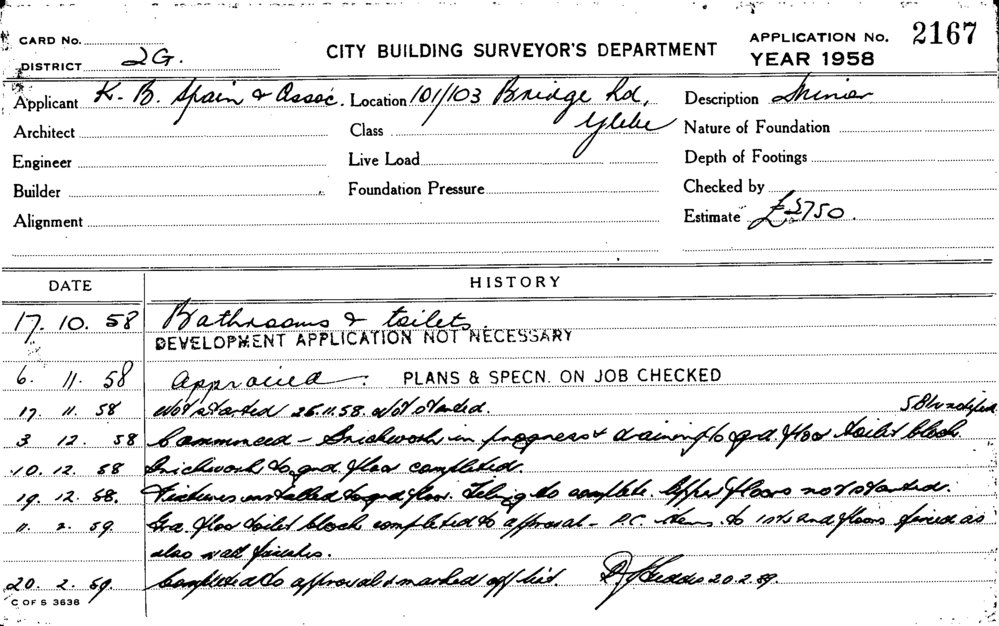 CARD No.
DISTRICT 2G.
CITY BUILDING SURVEYOR'S DEPARTMENT
APPLICATION No. 2167
YEAR 1958
Applicant K. B. Spain & Assoc. Location 101/103 Bridge Rd, Glebe Description Minor
Architect Class Nature of Foundation
Engineer Live Load Depth of Footings
Builder Foundation Pressure Checked by
Alignment Estimate £2750.
DATE HISTORY
17. 10. 58 Bathrooms & toilets
DEVELOPMENT APPLICATION NOT NECESSARY
6. 11. 58 Approved. PLANS & SPECN. ON JOB CHECKED
17. 11. 58 Not started 26.11.58. Not started. notified
3. 12. 58 Commenced - Brickwork in progress & draining to grd. floor toilet block.
10. 12. 58 Brickwork to grd. floor completed.
19. 12. 58. Fixtures installed to grd floor. to complete. Upper floors not started.
11. 2. 59. Grd. floor toilet block completed to approval - P.C. items to 1st & 2nd floors fixed as
also wall finishes.
20. 2. 59. Completed to approval & marked off list. 20.2.59.
C OF S 3638